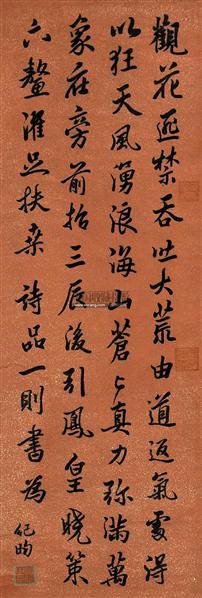 觀花匪禁吞吐大荒由道返氣處得
以狂天風湧浪海山蒼々真力弥滿萬
象在旁前招三辰後引鳳皇曉策
六鰲濯足扶桑 詩品一則書為
紀昀